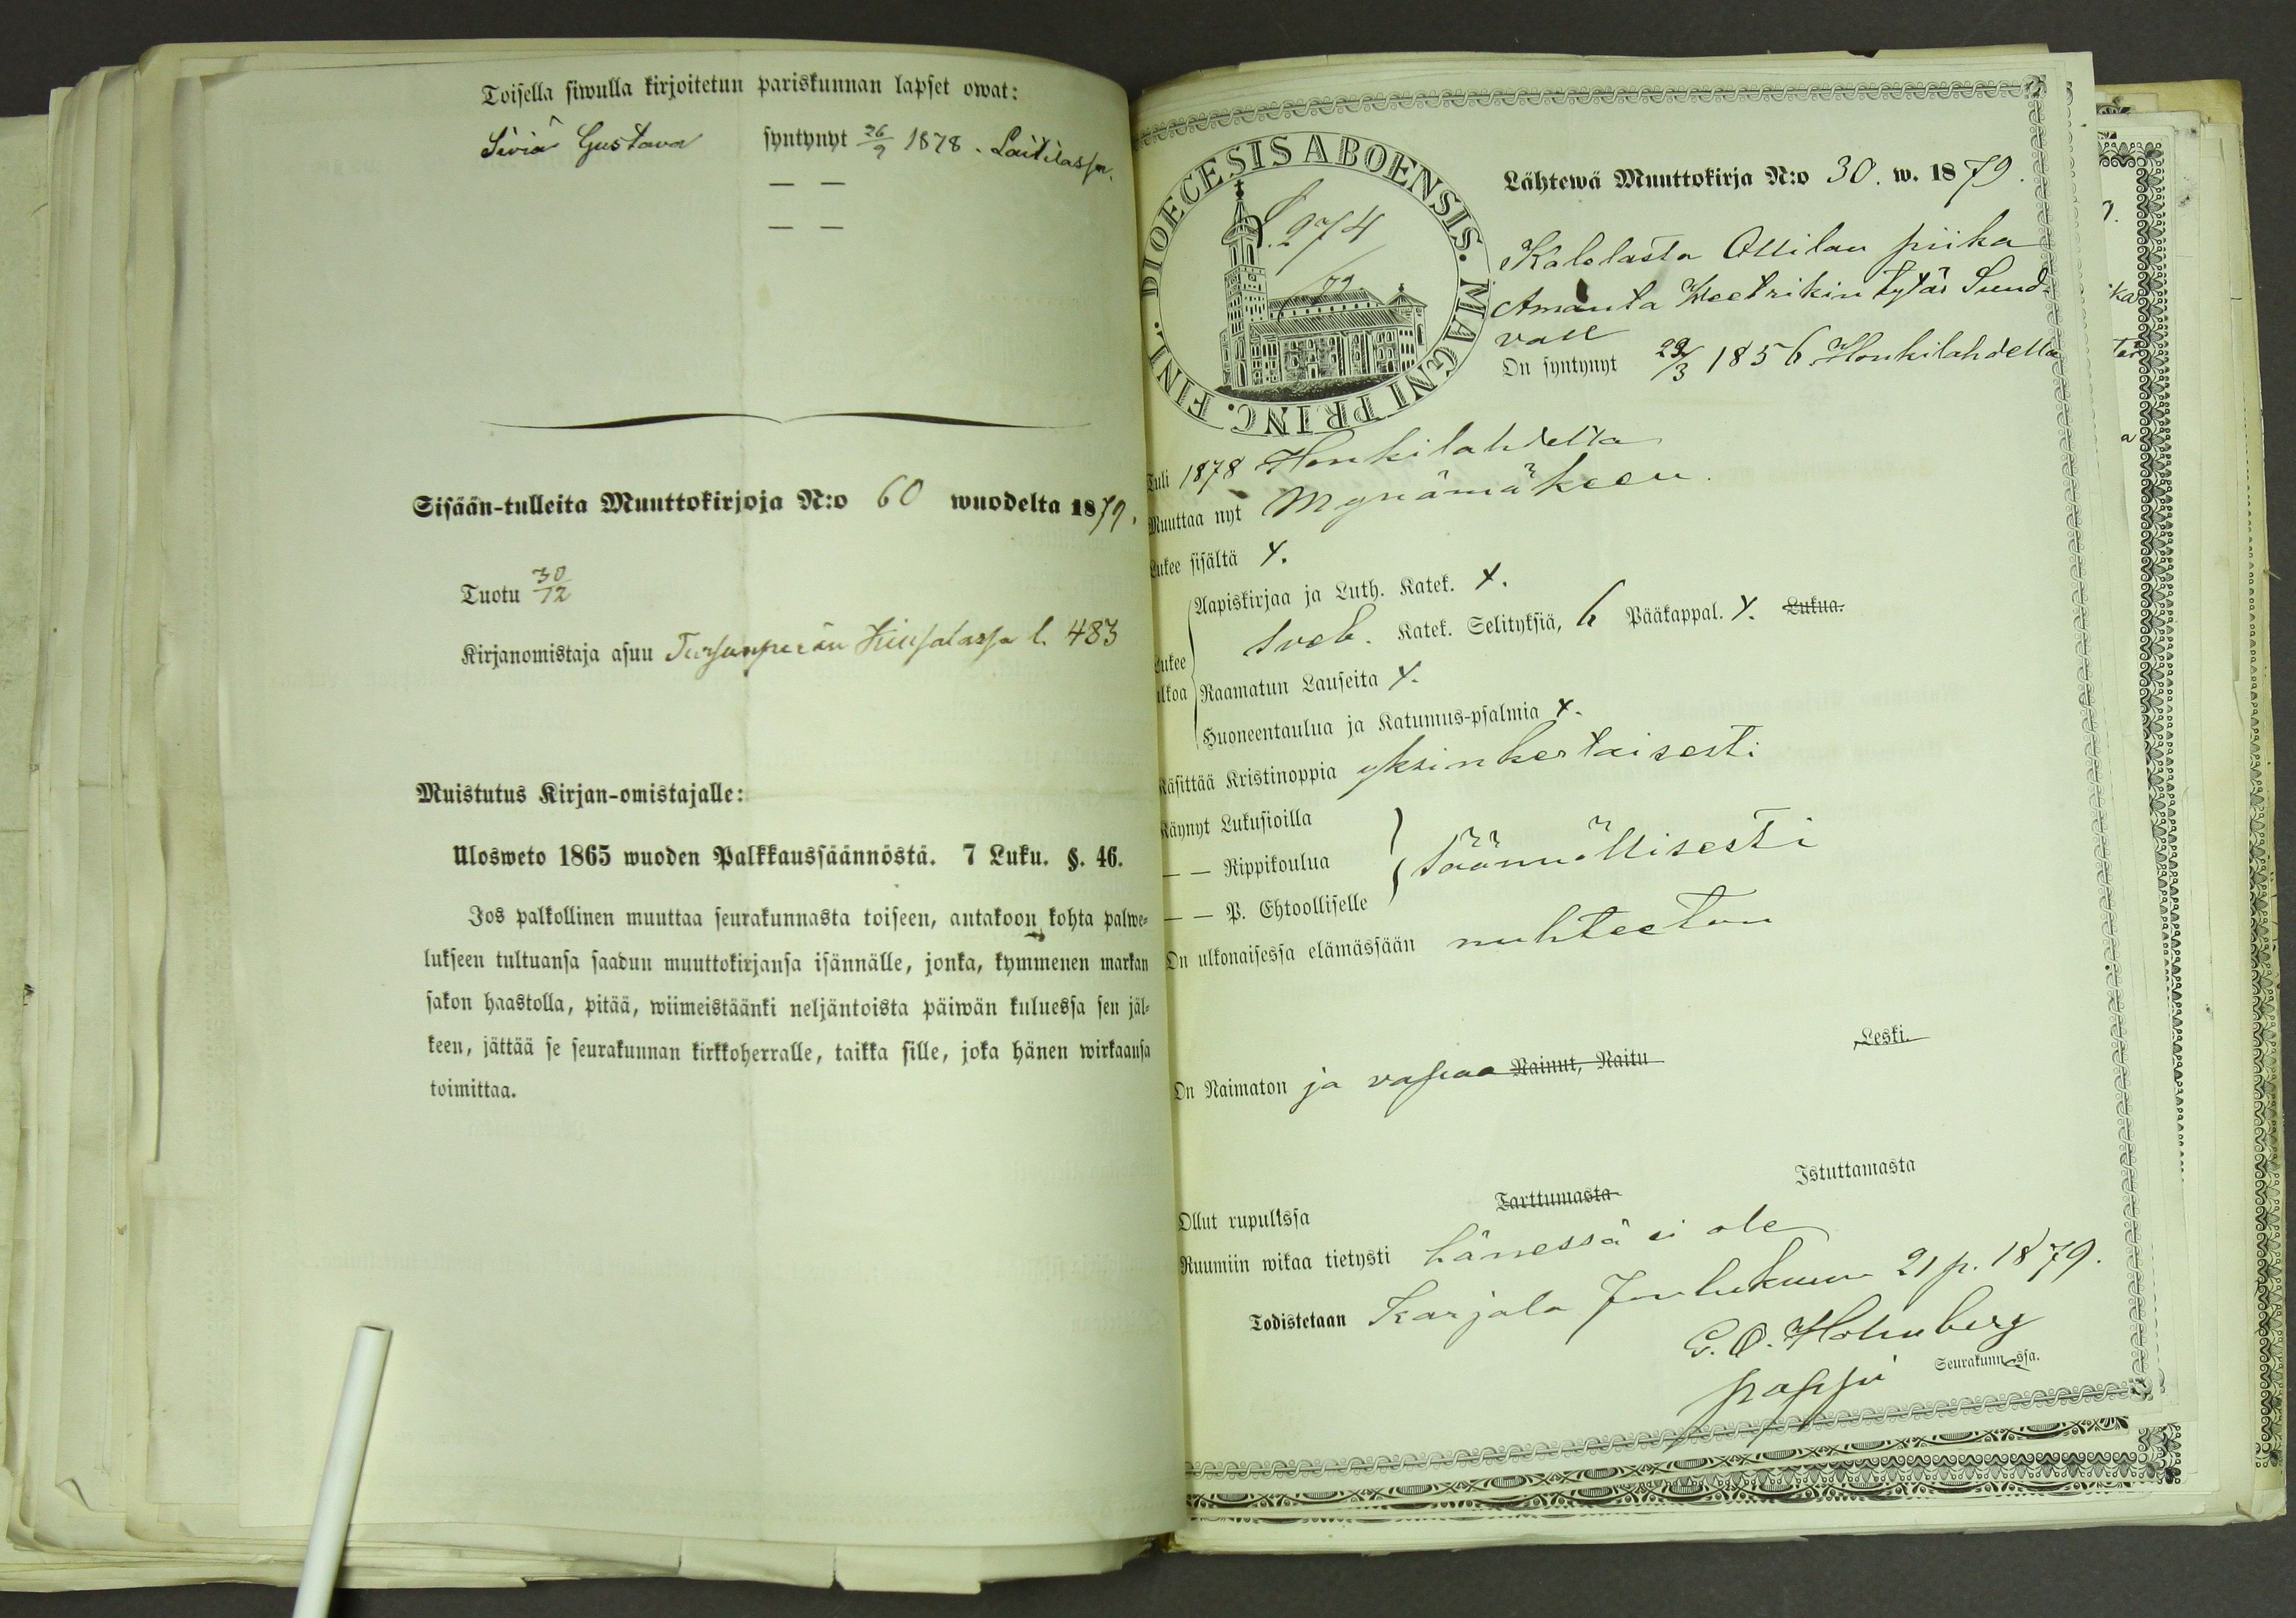 Toisella siwulla kirjoitetun pariskunnan lapset owat:
Siviä Gustava syntynyt 26/9 1878. Laitilassa.
— —
— —
Sisään-tulleita Muuttokirjoja N:o 60 wuodelta 1879.
Tuotu 30/12
Kirjanomistaja asuu l. 483
Muistutus Kirjan-omistajalle:
Ulosweto 1865 wuoden Palkkaussäännöstä. 7 Luku. §. 46.
Jos palkollinen muuttaa seurakunnasta toiseen, antakoon kohta palwe-
lukseen tultuansa saadun muuttokirjansa isännälle, jonka, kymmenen markan
sakon haastolla, pitää, wiimeistäänki neljäntoista päiwän kuluessa sen jäl-
keen, jättää se seurakunnan kirkkoherralle, taikka sille, joka hänen wirkaansa
toimittaa.
DIOECESIS ABOENSIS. MAGNI PRINC. FINL.
274
79
Lähtewä Muuttokirja N:o 30. w. 1879.
Kalelasta Ollilan piika
Amanta Kreetrikin tytär Sund-
vall
On syntynyt 29/3 1856 Honkilahdella
Tuli 1878 Honkilahdelta
Muuttaa nyt Mynämäkeen.
Lukee sisältä x.
Lukee ulkoa
Aapiskirjaa ja Luth. Katek. x.
Sveb. Katek. Selityksiä, 6 Pääkappal. x. Lukua.
Raamatun Lauseita x.
Huoneentaulua ja Katumus-psalmia x.
Käsittää Kristinoppia yksinkertaisesti
Käynyt Lukusioilla
— — Rippikoulua säännöllisesti
— — P. Ehtoolliselle
On ulkonaisessa elämässään nuhteeton
Leski.
On Naimaton ja vapaa Nainut, Naitu
Ollut rupulissa Tarttumasta Istuttamasta
Ruumiin wikaa tietysti hänessä ei ole
Todistetaan Karjala Joulukuun 21 p. 1879.
G. O. Holmberg
pappi Seurakunnassa.